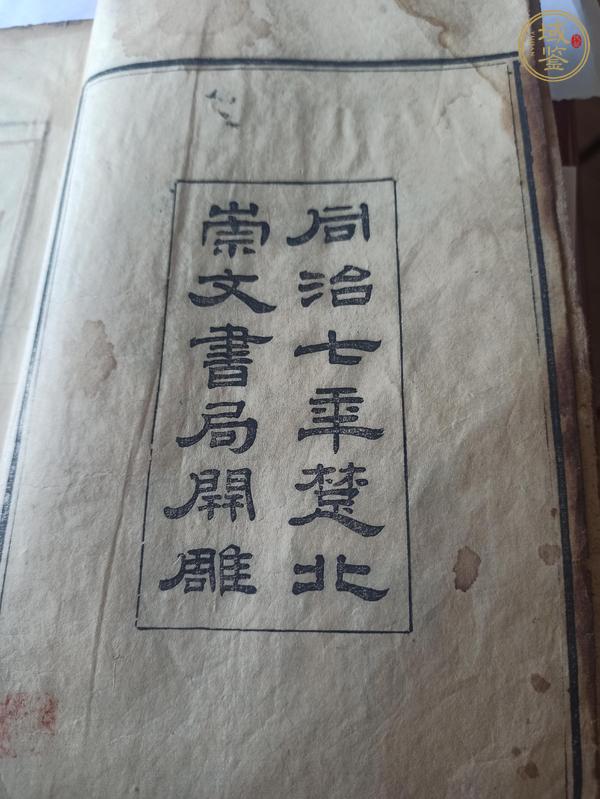 同治七年楚北
崇文書局開雕
域鉴